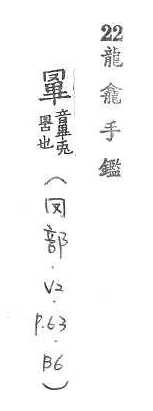 22龍龕手鑑
罼音畢兎罟也(罓部·V2·P.63·B6)